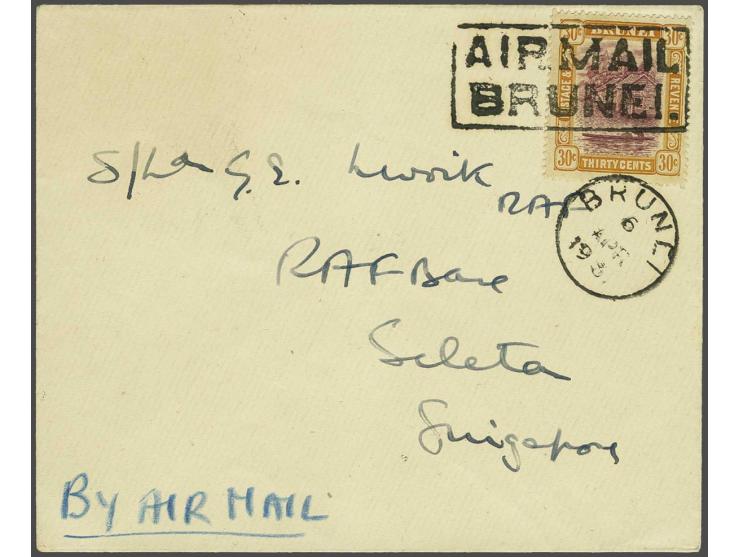 AIR MAIL
BRUNEI.
30c BRUNEI 30c
POSTAGE & REVENUE
30c THIRTY CENTS 30c
S/Ldr G.E. Livock
RAF
BRUNEI
6
APR
193
RAF Base
Seleta
Singapore
BY AIR MAIL